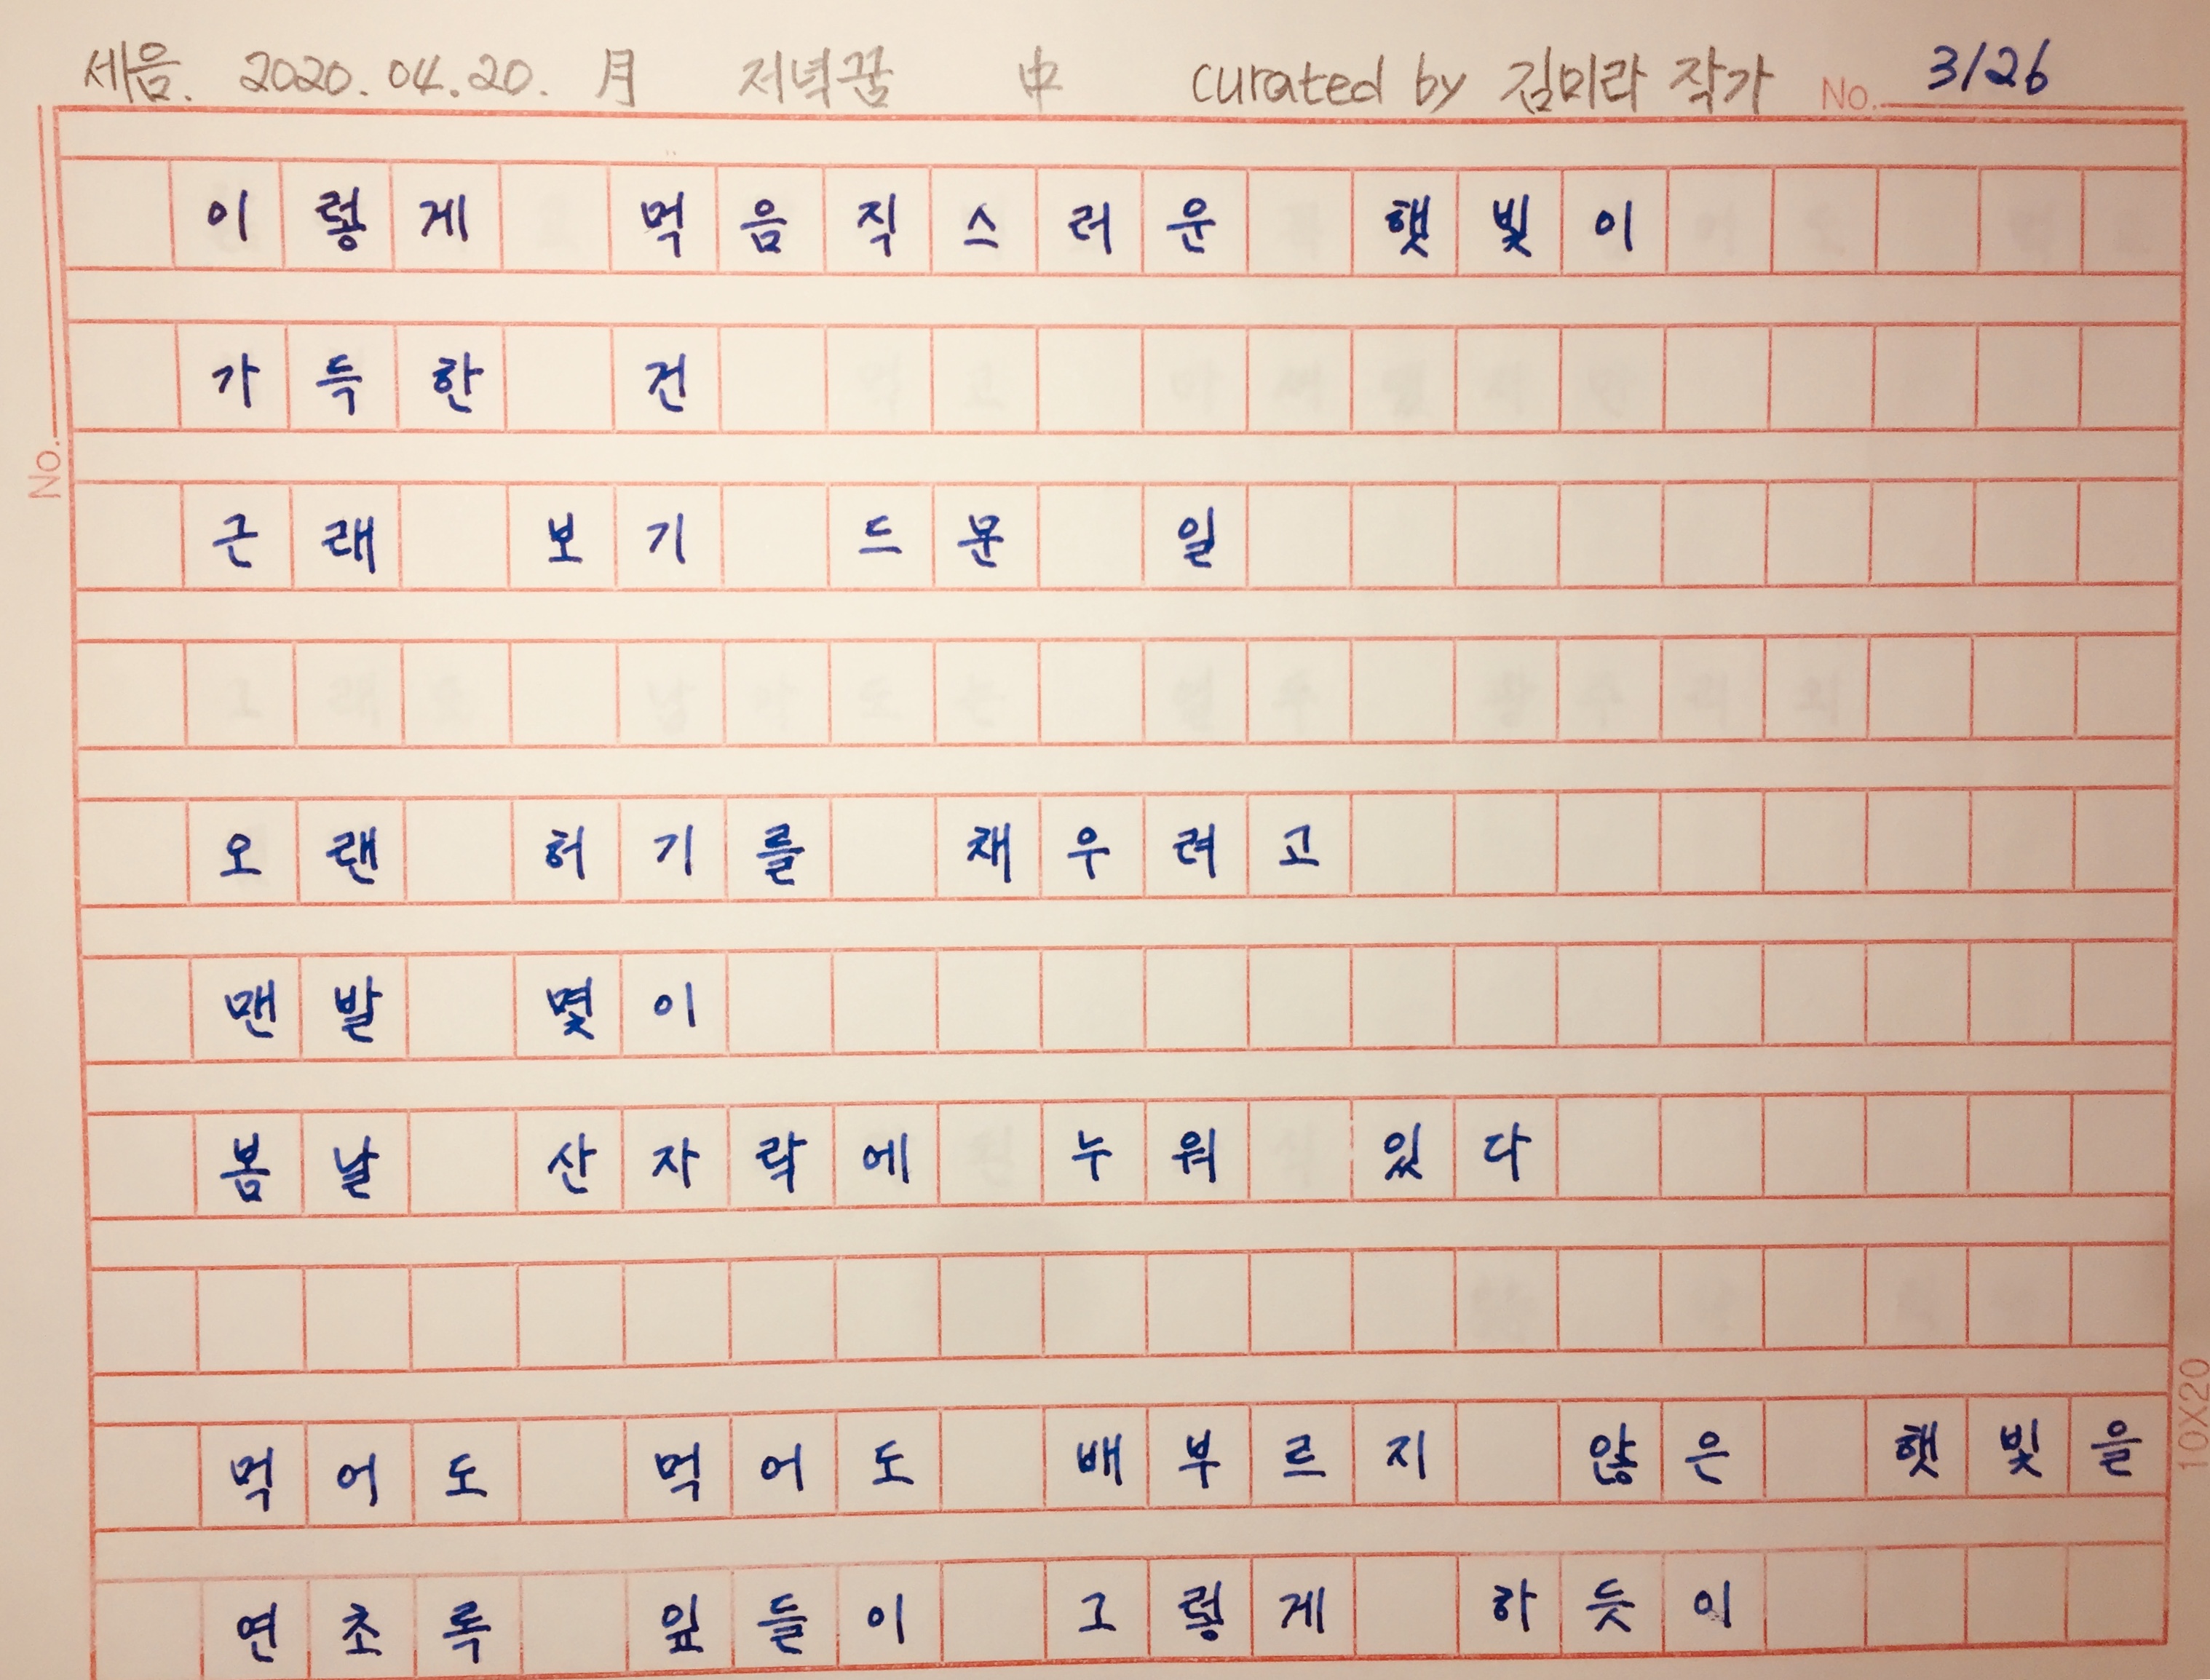 세음. 2020.04.20. 月 저녁꿈 中 curated by 김미라 작가 No. 3/26
이렇게 먹음직스러운 햇빛이
가득한 건
근래 보기 드문 일
오랜 허기를 채우려고
맨발 몇이
봄날 산자락에 누워 있다
먹어도 먹어도 배부르지 않은 햇빛을
연초록 잎들이 그렇게 하듯이
No.
10X20